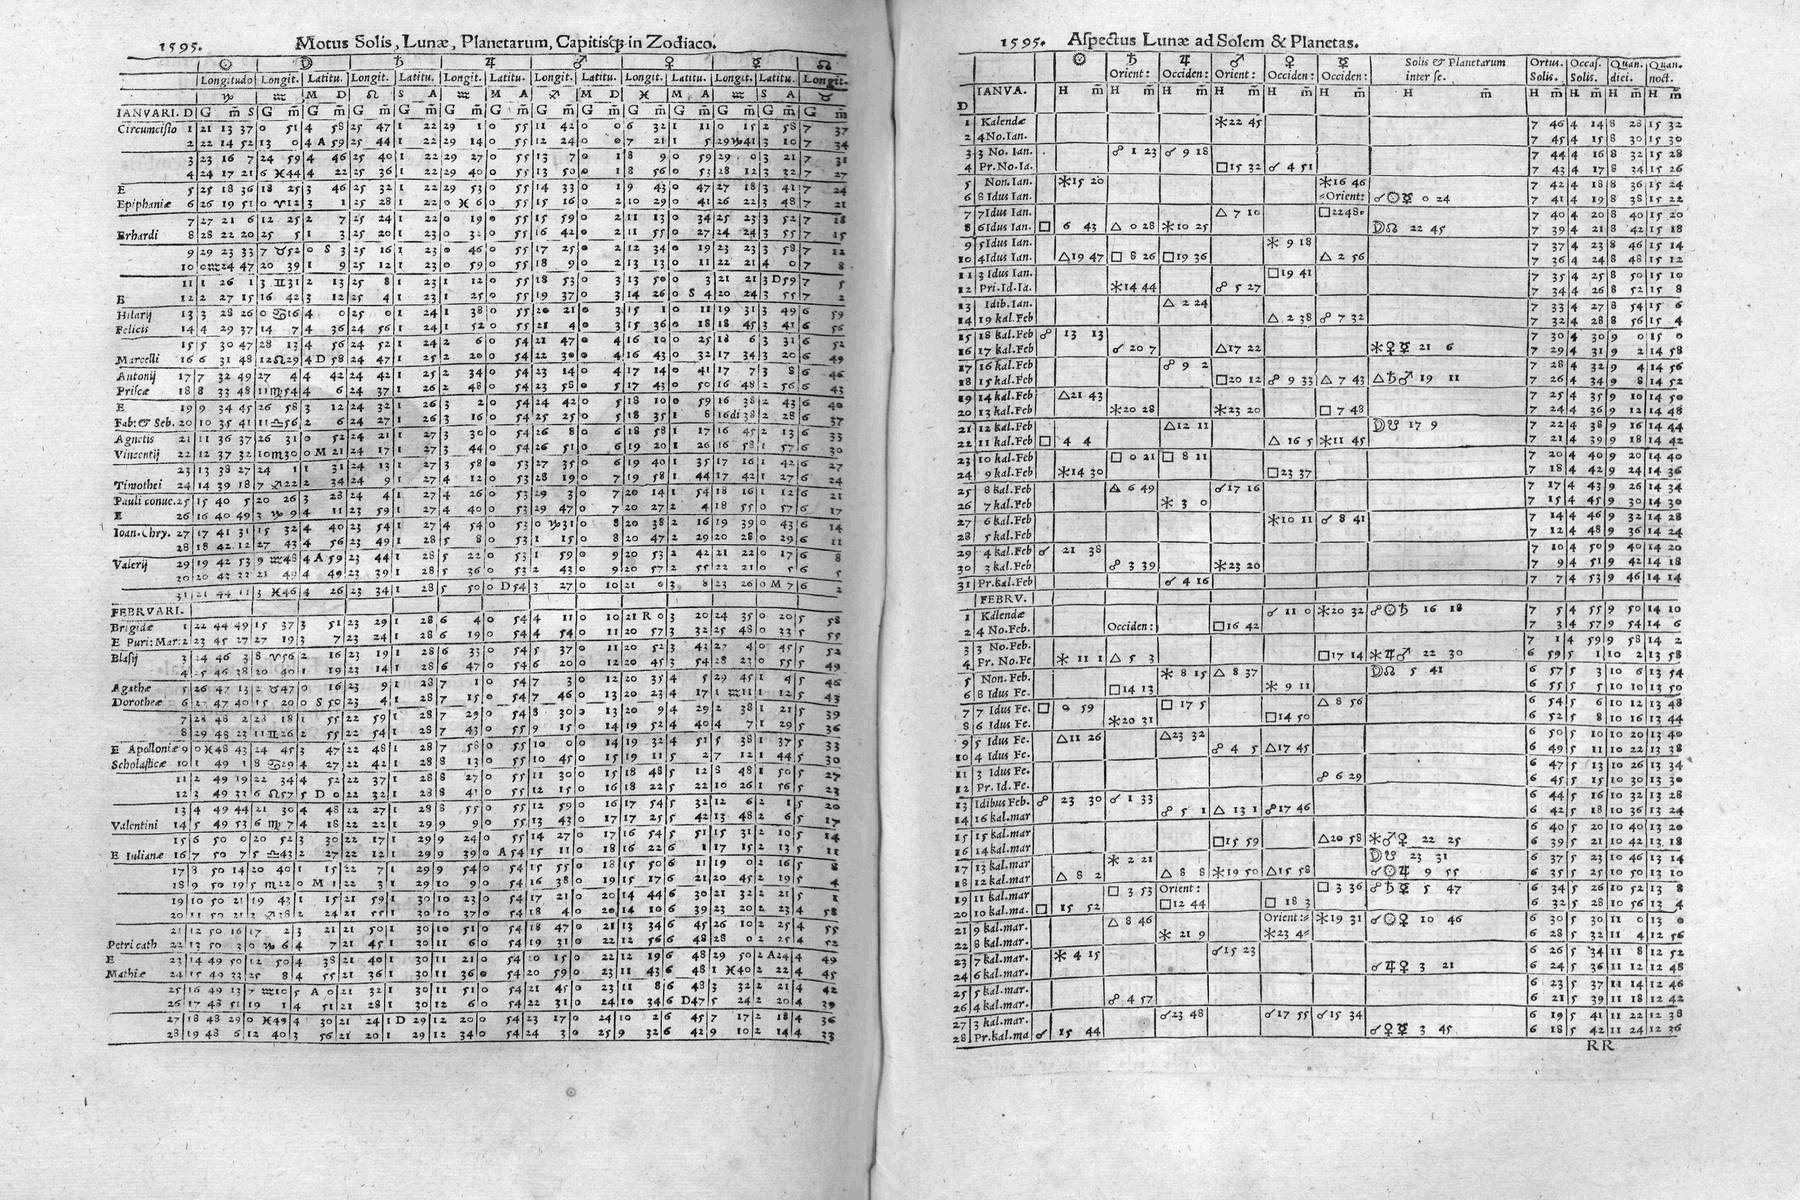 1595. Motus Solis, Lunæ, Planetarum, Capitisq́ in Zodiaco.
☉ ☽ ♄ ♃ ♂ ♀ ☿ ☊
Longitudo Longit. Latitu. Longit. Latitu. Longit. Latitu. Longit. Latitu. Longit. Latitu. Longit. Latitu. Longit.
♑ ♒ M D ♌ S A ♒ M A ♐ M D ♓ M A ♒ S A ♉
IANVARI. D G m̃ S G m̃ G m̃ G m̃ G m̃ G m̃ G m̃ G m̃ G m̃ G m̃ G m̃ G m̃ G m̃ G m̃
Circumcisio 1 21 13 37 0 51 4 58 25 47 1 22 29 1 0 55 11 42 0 0 6 32 1 11 0 15 2 58 7 37
2 22 14 52 13 0 4 A 59 25 44 1 22 29 14 0 55 12 24 0 0 7 21 1 5 29 ♑ 41 3 10 7 34
3 23 16 7 24 59 4 46 25 40 1 22 29 27 0 55 13 7 0 1 8 9 0 59 29 0 3 21 7 31
4 24 17 21 6 ♓ 44 4 22 25 36 1 22 29 40 0 55 13 50 0 1 8 56 0 53 28 12 3 32 7 27
E 5 25 18 36 18 25 3 46 25 32 1 22 29 53 0 55 14 33 0 1 9 43 0 47 27 18 3 41 7 24
Epiphaniæ 6 26 19 51 0 ♈ 12 3 1 25 28 1 22 0 ♓ 6 0 55 15 16 0 2 10 29 0 41 26 22 3 48 7 21
7 27 21 6 12 25 2 7 25 24 1 22 0 19 0 55 15 59 0 2 11 13 0 34 25 23 3 52 7 18
Erhardi 8 28 22 20 25 5 1 3 25 20 1 23 0 32 0 55 16 42 0 2 11 55 0 27 24 24 3 55 7 15
9 29 23 33 7 ♉ 52 0 S 3 25 16 1 23 0 46 0 55 17 25 0 2 12 34 0 19 23 23 3 58 7 12
10 0 ♒ 24 47 20 39 1 9 25 12 1 23 0 59 0 55 18 9 0 2 13 13 0 11 22 21 4 0 7 8
11 1 26 1 3 ♊ 31 2 13 25 8 1 23 1 12 0 55 18 53 0 3 13 50 0 3 21 21 3 D 59 7 5
E 12 2 27 15 16 42 3 12 25 4 1 23 1 25 0 55 19 37 0 3 14 26 0 S 4 20 24 3 55 7 2
Hilarij 13 3 28 26 0 ♋ 16 4 0 25 0 1 24 1 38 0 55 20 21 0 3 15 1 0 11 19 31 3 49 6 59
Felicis 14 4 29 37 14 7 4 36 24 56 1 24 1 52 0 55 21 4 0 3 15 36 0 18 18 45 3 41 6 56
15 5 30 47 28 13 4 56 24 52 1 24 2 6 0 54 21 47 0 4 16 10 0 25 18 6 3 31 6 52
Marcelli 16 6 31 48 12 ♌ 29 4 D 58 24 47 1 25 2 20 0 54 22 30 0 4 16 43 0 32 17 34 3 20 6 49
Antonij 17 7 32 49 27 4 4 42 24 42 1 25 2 34 0 54 23 14 0 4 17 14 0 41 17 7 3 8 6 46
Priscæ 18 8 33 48 11 ♍ 54 4 6 24 37 1 26 2 48 0 54 23 58 0 5 17 43 0 50 16 48 2 56 6 43
E 19 9 34 45 26 58 3 12 24 32 1 26 3 2 0 54 24 42 0 5 18 10 0 59 16 38 2 43 6 40
Fab: & Seb. 20 10 35 41 11 ♎ 56 2 6 24 27 1 26 3 16 0 54 25 25 0 5 18 35 1 8 16 di 38 2 28 6 37
Agnetis 21 11 36 37 26 31 0 52 24 21 1 27 3 30 0 54 26 8 0 6 18 58 1 17 16 45 2 13 6 33
Vincentij 22 12 37 32 10 ♏ 30 0 M 21 24 17 1 27 3 44 0 54 26 51 0 6 19 20 1 26 16 58 1 57 6 30
23 13 38 27 24 1 1 31 24 13 1 27 3 58 0 53 27 35 0 6 19 40 1 35 17 16 1 42 6 27
Timothei 24 14 39 18 7 ♐ 22 2 34 24 9 1 27 4 12 0 53 28 19 0 7 19 58 1 44 17 42 1 27 6 24
Pauli conue. 25 15 40 5 20 26 3 28 24 4 1 27 4 26 0 53 29 3 0 7 20 14 1 54 18 16 1 12 6 21
E 26 16 40 49 3 ♑ 9 4 11 23 59 1 27 4 40 0 53 29 47 0 7 20 27 2 4 18 55 0 57 6 17
Ioan. Chry. 27 17 41 31 15 32 4 40 23 54 1 27 4 54 0 53 0 ♑ 31 0 8 20 38 2 16 19 39 0 43 6 14
28 18 42 12 27 43 4 56 23 49 1 28 5 8 0 53 1 15 0 8 20 47 2 29 20 28 0 29 6 11
Valerij 29 19 42 53 9 ♒ 48 4 A 59 23 44 1 28 5 22 0 53 1 59 0 9 20 53 2 42 21 22 0 17 6 8
30 20 43 22 21 49 4 49 23 39 1 28 5 36 0 53 2 43 0 9 20 57 2 55 22 21 0 5 6 5
31 21 44 11 3 ♓ 46 4 26 23 34 1 28 5 50 0 D 54 3 27 0 10 21 0 3 8 23 26 0 M 7 6 2
FEBRVARI.
Brigidæ 1 22 44 49 15 37 3 51 23 29 1 28 6 4 0 54 4 11 0 10 21 R 0 3 20 24 35 0 20 5 58
E Puri: Mar: 2 23 45 27 27 19 3 7 23 24 1 28 6 19 0 54 4 54 0 11 20 57 3 32 25 48 0 33 5 55
Blasij 3 24 46 3 8 ♈ 56 2 16 23 19 1 28 6 33 0 54 5 37 0 11 20 52 3 43 27 4 0 45 5 52
4 25 46 38 20 40 1 19 23 14 1 28 6 47 0 54 6 20 0 12 20 45 3 54 28 23 0 55 5 49
Agathæ 5 26 47 13 2 ♉ 47 0 16 23 9 1 28 7 1 0 54 7 3 0 12 20 35 4 5 29 45 1 4 5 46
Dorotheæ 6 27 47 40 15 20 0 S 50 23 4 1 28 7 15 0 54 7 46 0 13 20 23 4 17 1 ♒ 11 1 12 5 43
7 28 48 2 28 18 1 55 22 59 1 28 7 29 0 54 8 30 0 13 20 9 4 29 2 38 1 21 5 39
8 29 48 23 11 ♊ 26 2 55 22 54 1 28 7 43 0 55 9 15 0 14 19 52 4 40 4 7 1 29 5 36
E Apolloniæ 9 0 ♓ 48 43 24 45 3 47 22 48 1 28 7 58 0 55 10 0 0 14 19 32 4 51 5 38 1 37 5 33
Scholasticæ 10 1 49 1 8 ♋ 29 4 27 22 42 1 28 8 13 0 55 10 45 0 15 19 11 5 2 7 12 1 44 5 30
11 2 49 19 22 34 4 52 22 37 1 28 8 27 0 55 11 30 0 15 18 48 5 12 8 48 1 50 5 27
12 3 49 33 6 ♌ 57 5 D 0 22 32 1 28 8 41 0 55 12 15 0 16 18 22 5 22 10 26 1 56 5 23
13 4 49 44 21 30 4 48 22 27 1 28 8 55 0 55 12 59 0 16 17 54 5 32 12 6 2 1 5 20
Valentini 14 5 49 53 6 ♍ 7 4 18 22 22 1 29 9 9 0 55 13 43 0 17 17 25 5 42 13 48 2 6 5 17
15 6 50 0 20 52 3 30 22 17 1 29 9 24 0 55 14 27 0 17 16 54 5 51 15 31 2 10 5 14
E Iulianæ 16 7 50 7 5 ♎ 43 2 27 22 12 1 29 9 39 0 A 54 15 11 0 18 16 22 6 1 17 15 2 13 5 11
17 8 50 14 20 40 1 15 22 7 1 29 9 54 0 54 15 55 0 18 15 50 6 11 19 0 2 16 5 8
18 9 50 19 5 ♏ 22 0 M 1 22 3 1 29 10 9 0 54 16 38 0 19 15 17 6 21 20 45 2 19 5 4
19 10 50 21 19 43 1 15 21 59 1 30 10 23 0 54 17 21 0 20 14 44 6 30 21 32 2 21 5 1
20 11 50 21 2 ♐ 18 2 24 21 55 1 30 10 37 0 54 18 4 0 20 14 10 6 39 23 20 2 23 4 58
21 12 50 16 17 2 3 21 21 50 1 30 10 51 0 54 18 47 0 21 13 34 6 45 26 10 2 25 4 55
Petri cath 22 13 50 3 0 ♑ 6 4 7 21 45 1 30 11 6 0 54 19 31 0 22 12 56 6 48 28 0 2 25 4 52
E 23 14 49 50 12 50 4 38 21 40 1 30 11 21 0 54 20 15 0 22 12 19 6 48 29 50 2 A 24 4 49
Mathiæ 24 15 49 33 25 8 4 55 21 36 1 30 11 36 0 54 20 59 0 23 11 43 6 48 1 ♓ 40 2 22 4 45
25 16 49 13 7 ♒ 10 5 A 0 21 32 1 30 11 51 0 54 21 45 0 23 11 8 6 48 3 32 2 21 4 42
26 17 48 51 19 1 4 51 21 28 1 30 12 6 0 54 22 31 0 24 10 34 6 D 47 5 24 2 20 4 39
27 18 48 29 0 ♓ 49 4 30 21 24 1 D 29 12 20 0 54 23 17 0 24 10 2 6 45 7 17 2 18 4 36
28 19 48 6 12 40 3 56 21 20 1 29 12 34 0 54 24 3 0 25 9 32 6 42 9 10 2 14 4 33
1595. Aspectus Lunæ ad Solem & Planetas.
☉ ♄ ♃ ♂ ♀ ☿ Solis & Planetarum Ortus Occas. Quan. Quan.
Orient: Occiden: Orient: Occiden: Occiden: inter se. Solis. Solis. diei. noct.
D IANVA. H m̃ H m̃ H m̃ H m̃ H m̃ H m̃ H m̃ H m̃ H m̃ H m̃ H m̃
1 Kalendæ ⚹ 22 45 7 46 4 14 8 28 15 32
2 4 No. Ian. 7 45 4 15 8 30 15 30
3 3 No. Ian. ☍ 1 23 ☌ 9 18 7 44 4 16 8 32 15 28
4 Pr. No. Ia. □ 15 32 ☌ 4 51 7 43 4 17 8 34 15 26
5 Non. Ian. ⚹ 15 20 ⚹ 16 46 7 42 4 18 8 36 15 24
6 8 Idus Ian Orient: ☌ ☉ ☿ 0 24 7 41 4 19 8 38 15 22
7 7 Idus Ian. △ 7 10 □ 22 48 7 40 4 20 8 40 15 20
8 6 Idus Ian. □ 6 43 △ 0 28 ⚹ 10 25 ☽ ☊ 22 45 7 39 4 21 8 42 15 18
9 5 Idus Ian. ⚹ 9 18 7 37 4 23 8 46 15 14
10 4 Idus Ian. △ 19 47 □ 8 26 □ 19 36 △ 2 56 7 36 4 24 8 48 15 12
11 3 Idus Ian □ 19 41 7 35 4 25 8 50 15 10
12 Pri. Id. Ia. ⚹ 14 44 ☍ 5 27 7 34 4 26 8 52 15 8
13 Idib. Ian. △ 2 24 7 33 4 27 8 54 15 6
14 19 kal. Feb △ 2 38 ☍ 7 32 7 32 4 28 8 56 15 4
15 18 kal. Feb ☍ 13 13 7 30 4 30 9 0 15 0
16 17 kal. Feb ☌ 20 7 △ 17 22 ⚹ ♀ ☿ 21 6 7 29 4 31 9 2 14 58
17 16 kal. Feb ☍ 9 2 7 28 4 32 9 4 14 56
18 15 kal. Feb □ 20 12 ☍ 9 33 △ 7 43 △ ♄ ♂ 19 11 7 26 4 34 9 8 14 52
19 14 kal. Feb △ 21 43 7 25 4 35 9 10 14 50
20 13 kal. Feb ⚹ 20 28 ⚹ 23 20 □ 7 48 7 24 4 36 9 12 14 48
21 12 kal. Feb △ 12 11 ☽ ☋ 17 9 7 22 4 38 9 16 14 44
22 11 kal. Feb □ 4 4 △ 16 5 ⚹ 11 45 7 21 4 39 9 18 14 42
23 10 kal. Feb □ 0 21 □ 8 11 7 20 4 40 9 20 14 40
24 9 kal. Feb ⚹ 14 30 □ 23 37 7 18 4 42 9 24 14 36
25 8 kal. Feb △ 6 49 ☌ 17 16 7 17 4 43 9 26 14 34
26 7 kal. Feb ⚹ 3 0 7 15 4 45 9 30 14 30
27 6 kal. Feb ⚹ 10 11 ☌ 8 41 7 14 4 46 9 32 14 28
28 5 kal. Feb 7 12 4 48 9 36 14 24
29 4 kal. Feb ☌ 21 38 7 10 4 50 9 40 14 20
30 3 kal. Feb ☍ 3 39 ⚹ 23 20 7 9 4 51 9 42 14 18
31 Pr. kal. Feb ☌ 4 16 7 7 4 53 9 46 14 14
FEBRV.
1 Kalendæ ☌ 11 0 ⚹ 20 32 ☍ ☉ ♄ 16 18 7 5 4 55 9 50 14 10
2 4 No. Feb. Occiden: □ 16 42 7 3 4 57 9 54 14 6
3 3 No. Feb. 7 1 4 59 9 58 14 2
4 Pr. No. Fe ⚹ 11 1 △ 5 3 □ 17 14 ⚹ ♃ ♂ 22 30 6 59 5 1 10 2 13 58
5 Non. Feb. ⚹ 8 15 △ 8 37 ☽ ☊ 5 41 6 57 5 3 10 6 13 54
6 8 Idus Fe. □ 14 13 ⚹ 9 11 6 55 5 5 10 10 13 50
7 7 Idus Fe. □ 0 59 □ 17 5 △ 8 56 6 54 5 6 10 12 13 48
8 6 Idus Fe. ⚹ 20 31 □ 14 50 6 52 5 8 10 16 13 44
9 5 Idus Fe. △ 11 26 △ 23 32 6 50 5 10 10 20 13 40
10 4 Idus Fe. ☍ 4 5 △ 17 45 6 49 5 11 10 22 13 38
11 3 Idus Fe. 6 47 5 13 10 26 13 34
12 Pr. Id. Fe. ☍ 6 29 6 45 5 15 10 30 13 30
13 Idibus Feb. ☍ 23 30 ☌ 1 33 6 44 5 16 10 32 13 28
14 16 kal. mar ☍ 5 1 △ 13 1 ☍ 17 46 6 42 5 18 10 36 13 24
15 15 kal. mar 6 40 5 20 10 40 13 20
16 14 kal. mar □ 15 59 △ 20 58 ⚹ ♂ ♀ 22 25 6 39 5 21 10 42 13 18
17 13 kal. mar ⚹ 2 21 ☽ ☋ 23 31 6 37 5 23 10 46 13 14
18 12 kal. mar △ 8 2 △ 8 8 ⚹ 19 50 △ 15 58 ☌ ☉ ♃ 9 55 6 35 5 25 10 50 13 10
19 11 kal. mar □ 3 53 Orient: □ 3 36 ☍ ♄ ☿ 5 47 6 34 5 26 10 52 13 8
20 10 kal. ma. □ 15 52 □ 12 44 □ 18 3 6 32 5 28 10 56 13 4
21 9 kal. mar. △ 8 46 Orient: ⚹ 19 31 ☌ ☉ ♀ 10 46 6 30 5 30 11 0 13 0
22 8 kal. mar. ⚹ 21 9 ⚹ 23 4 6 28 5 32 11 4 12 56
23 7 kal. mar ⚹ 4 15 ☌ 15 23 6 26 5 34 11 8 12 52
24 6 kal. mar. ☌ ♃ ♀ 3 21 6 24 5 36 11 12 12 48
25 5 kal. mar. 6 23 5 37 11 14 12 46
26 4 kal. mar. ☍ 4 57 6 21 5 39 11 18 12 42
27 3 kal. mar. ☌ 23 48 ☌ 17 55 ☌ 15 34 6 19 5 41 11 22 12 38
28 Pr. kal. ma ☌ 15 44 ☌ ♀ ☿ 3 45 6 18 5 42 11 24 12 36
RR